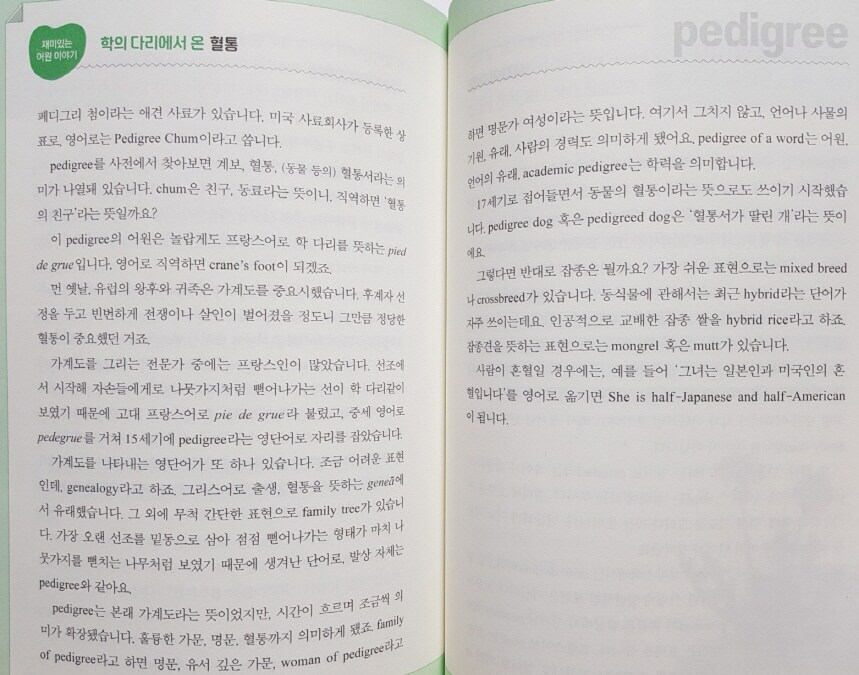 재미있는
어원 이야기
학의 다리에서 온 혈통
페디그리 첨이라는 애견 사료가 있습니다. 미국 사료회사가 등록한 상
표로, 영어로는 Pedigree Chum이라고 씁니다.
pedigree를 사전에서 찾아보면 계보, 혈통, (동물 등의) 혈통서라는 의
미가 나열돼 있습니다. chum은 친구, 동료라는 뜻이니, 직역하면 '혈통
의 친구'라는 뜻일까요?
이 pedigree의 어원은 놀랍게도 프랑스어로 학 다리를 뜻하는 pied
de grue입니다. 영어로 직역하면 crane's foot이 되겠죠.
먼 옛날, 유럽의 왕후와 귀족은 가계도를 중요시했습니다. 후계자 선
정을 두고 빈번하게 전쟁이나 살인이 벌어졌을 정도니 그만큼 정당한
혈통이 중요했던 거죠.
가계도를 그리는 전문가 중에는 프랑스인이 많았습니다. 선조에
서 시작해 자손들에게로 나뭇가지처럼 뻗어나가는 선이 학 다리같이
보였기 때문에 고대 프랑스어로 pie de grue라 불렸고, 중세 영어로
pedegrue를 거쳐 15세기에 pedigree라는 영단어로 자리를 잡았습니다.
가계도를 나타내는 영단어가 또 하나 있습니다. 조금 어려운 표현
인데, genealogy라고 하죠. 그리스어로 출생, 혈통을 뜻하는 geneā에
서 유래했습니다. 그 외에 무척 간단한 표현으로 family tree가 있습니
다. 가장 오랜 선조를 밑동으로 삼아 점점 뻗어나가는 형태가 마치 나
뭇가지를 뻗치는 나무처럼 보였기 때문에 생겨난 단어로, 발상 자체는
pedigree와 같아요.
pedigree는 본래 가계도라는 뜻이었지만, 시간이 흐르며 조금씩 의
미가 확장됐습니다. 훌륭한 가문, 명문, 혈통까지 의미하게 됐죠. family
of pedigree라고 하면 명문, 유서 깊은 가문, woman of pedigree라고
pedigree
하면 명문가 여성이라는 뜻입니다. 여기서 그치지 않고, 언어나 사물의
기원, 유래, 사람의 경력도 의미하게 됐어요. pedigree of a word는 어원,
언어의 유래, academic pedigree는 학력을 의미합니다.
17세기로 접어들면서 동물의 혈통이라는 뜻으로도 쓰이기 시작했습
니다. pedigree dog 혹은 pedigreed dog은 '혈통서가 딸린 개'라는 뜻이
에요.
그렇다면 반대로 잡종은 뭘까요? 가장 쉬운 표현으로는 mixed breed
나 crossbreed가 있습니다. 동식물에 관해서는 최근 hybrid라는 단어가
자주 쓰이는데요. 인공적으로 교배한 잡종 쌀을 hybrid rice라고 하죠.
잡종견을 뜻하는 표현으로는 mongrel 혹은 mutt가 있습니다.
사람이 혼혈일 경우에는, 예를 들어 '그녀는 일본인과 미국인의 혼
혈입니다'를 영어로 옮기면 She is half-Japanese and half-American
이 됩니다.